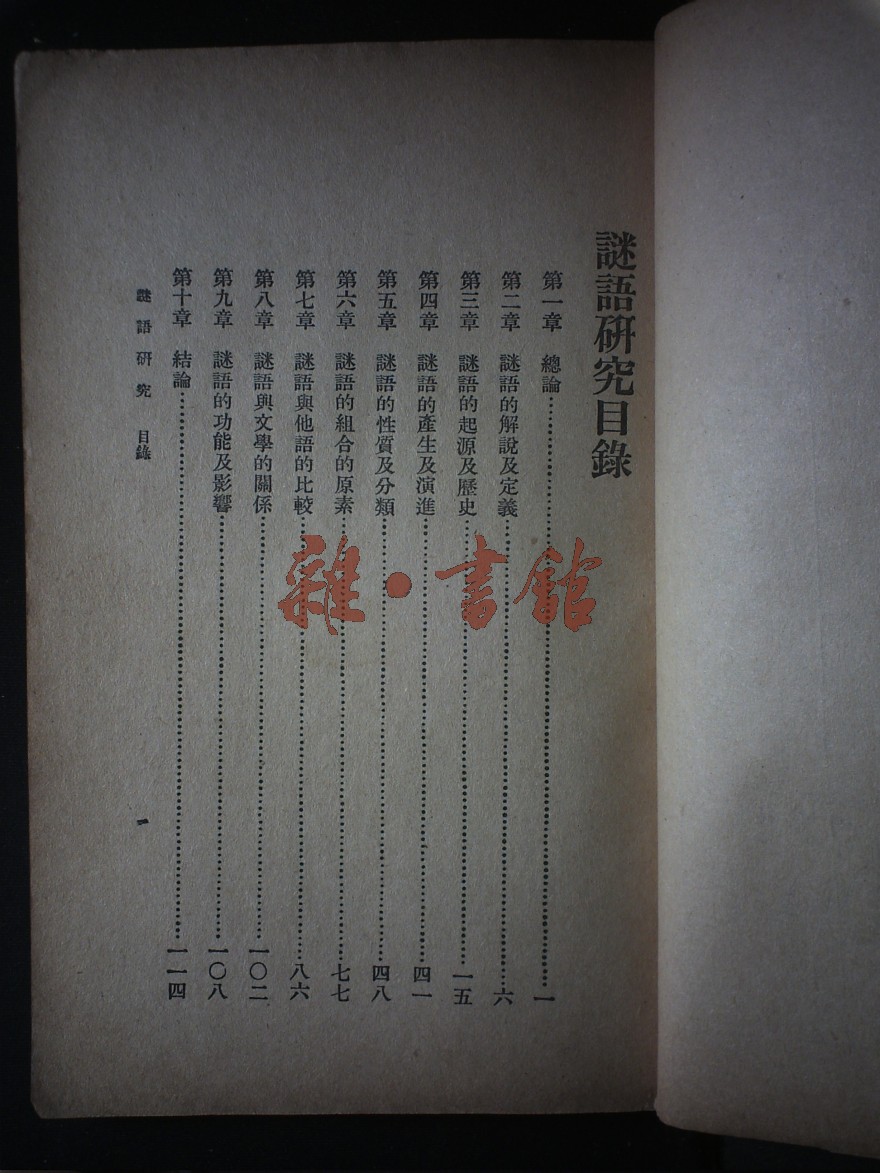 謎語研究目錄
第一章 總論……一
第二章 謎語的解說及定義……六
第三章 謎語的起源及歷史……一五
第四章 謎語的產生及演進……四一
第五章 謎語的性質及分類……四八
第六章 謎語的組合的原素……七七
第七章 謎語與他語的比較……八六
第八章 謎語與文學的關係……一〇二
第九章 謎語的功能及影響……一〇八
第十章 結論……一一四
謎語研究 目錄 一
雜·書館